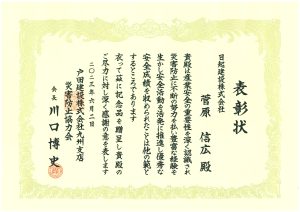 表彰状
日起建設株式会社
菅原 信広 殿
貴殿は産業安全の重要性を深く認識され
災害防止に不断の努力を払い豊富な経験を
生かし安全活動を活発に推進し優秀な
安全成績を収められたことは他の範と
するところであります
依って茲に記念品を贈呈し貴殿の
ご尽力に対し深く感謝の意を表します
二〇二三年六月二日
戸田建設株式会社九州支店
災害防止協力会
会長 川口博史